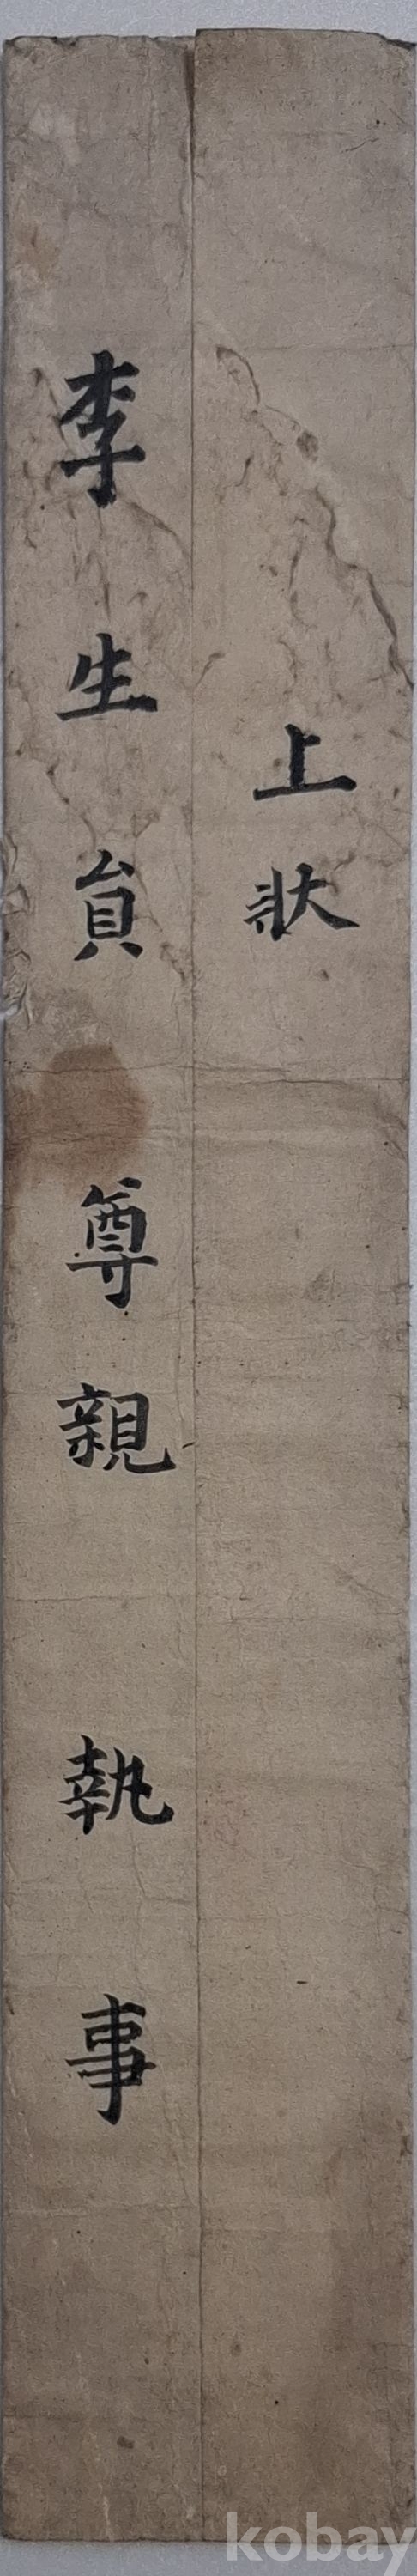 上狀
李生員尊親執事
kobay